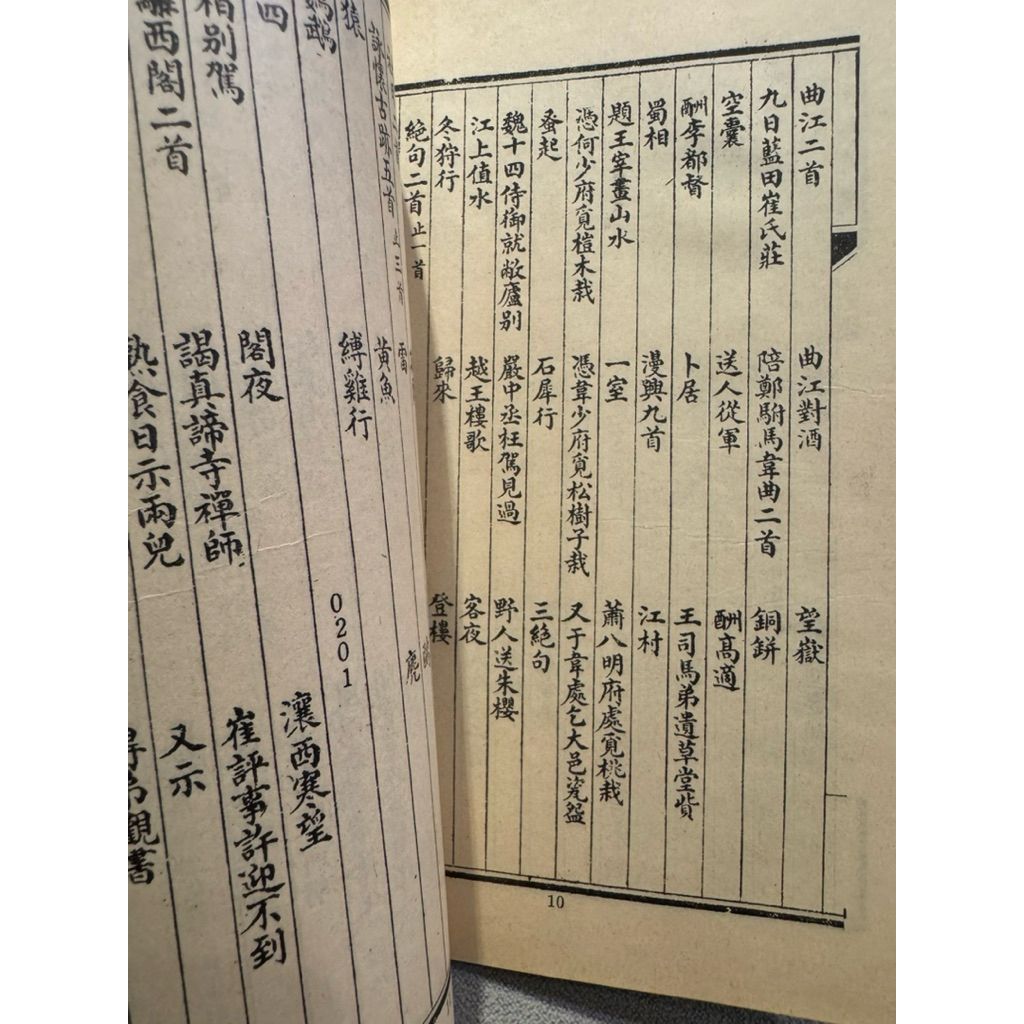 曲江二首 曲江對酒 望嶽
九日藍田崔氏莊 陪鄭駙馬韋曲二首 銅缾
空囊 送人從軍 酬高適
酬李都督 卜居 王司馬弟遺草堂貲
蜀相 漫興九首 江村
題王宰畫山水 一室 蕭八明府處覓桃栽
憑何少府覓榿木栽 憑韋少府覓松樹子栽 又于韋處乞大邑瓷盌
蚤起 石犀行 三絕句
魏十四侍御就敝廬别 嚴中丞枉駕見過 野人送朱櫻
江上值水 越王樓歌 客夜
冬狩行 歸來 登樓
絕句二首止一首
10
詠懷古跡五首 止三首 黃魚
猿 縛雞行
鸚鵡
0201
瀼西寒望
四 閣夜 崔評事許迎不到
别駕 謁真諦寺禪師 又示
西閣二首 熟食日示兩兒 觀書